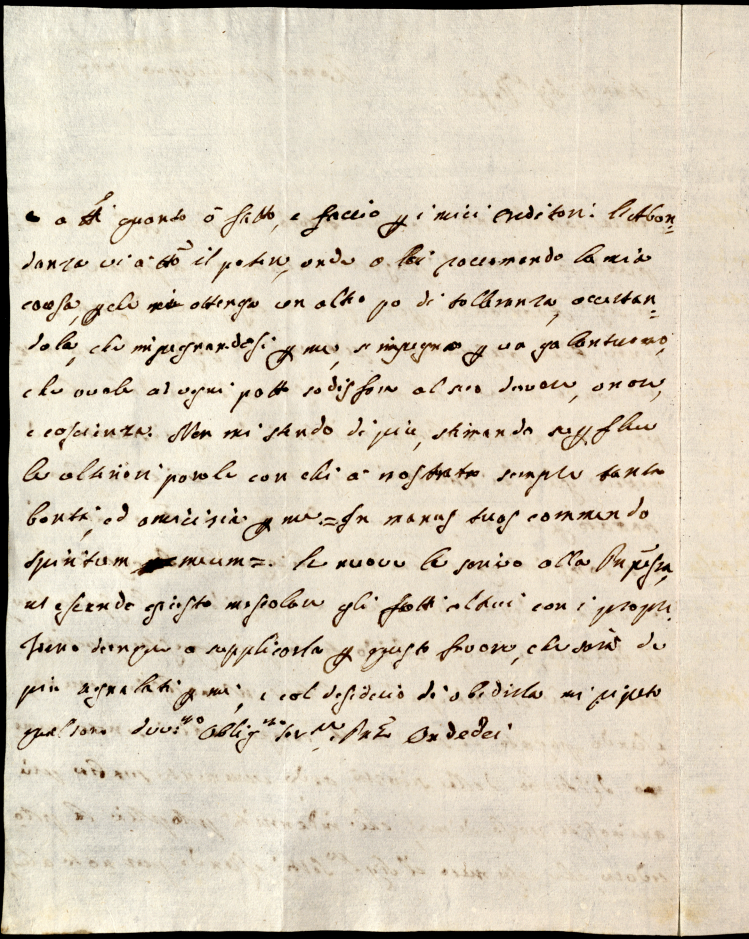 a quanto ò fatto, e faccio p i miei creditori: l'Abon=
danza vi à il potere, onde a lei raccomando la mia
causa, p che mi ottenga un altro po di tolleranza, accertan=
dola, che impegnandosi p me, s'impegna p un galantuomo,
che vuole ad ogni patto sodisfare al suo dovere, onore,
e coscienza. Non mi stendo di più, stimando
le ulteriori parole con chi à mostrato sempre tanta
bontà, ed amicizia p me = In manus tuas commendo
spiritum meum =. le nuove le scrivo alla
non essendo giusto mescolare gli fatti altrui con i propri.
Torno dunque a supplicarla p questo favore, che sarà de
più segnalati p me, e col desiderio di obedirla mi ripeto
qual sono Oblig.mo Ondedei